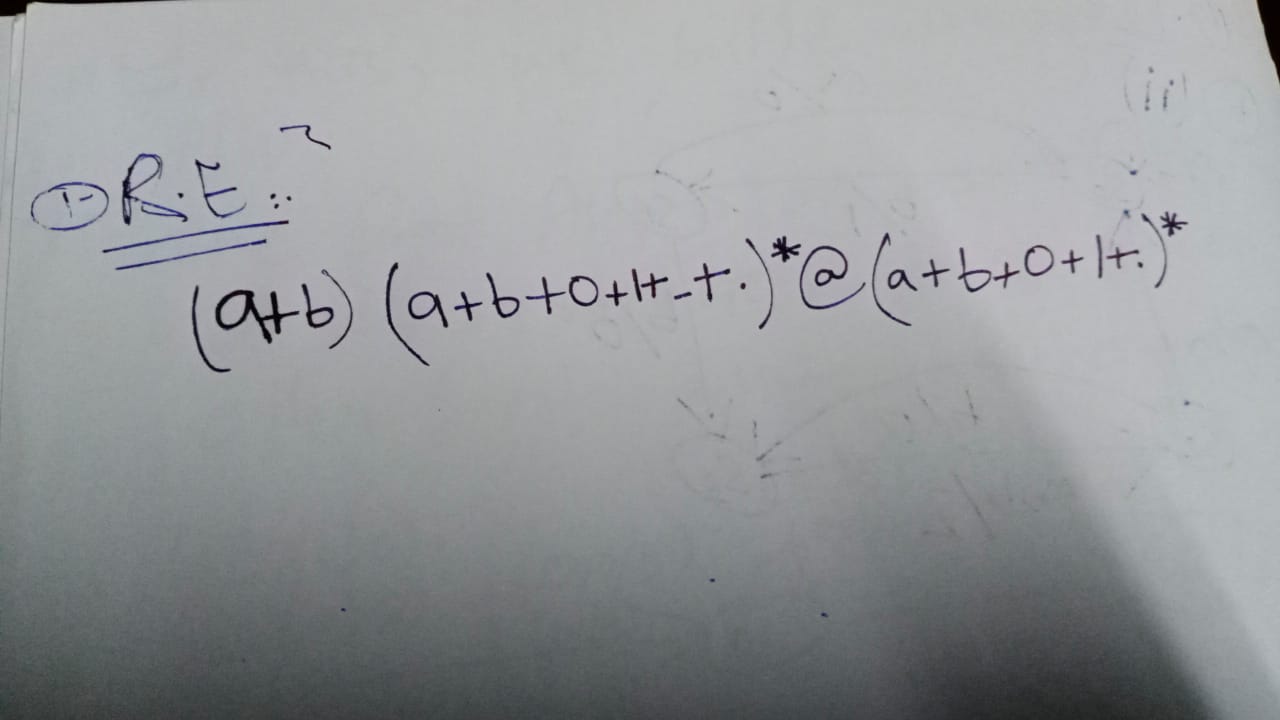 1- R.E ::
(a+b) (a+b+0+1+_+.)*@(a+b+0+1+.)*
(ii)